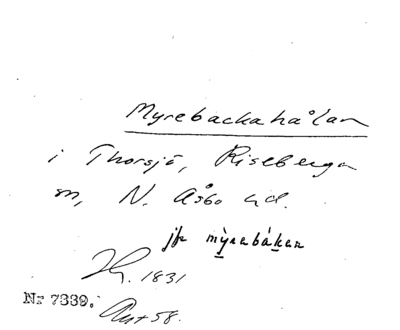 Myrebackahålan
i Thorsjö, Riseberga
m, N. Åsbo hd.
jfr mỳrabákan
1831
Nr 7339.
58.